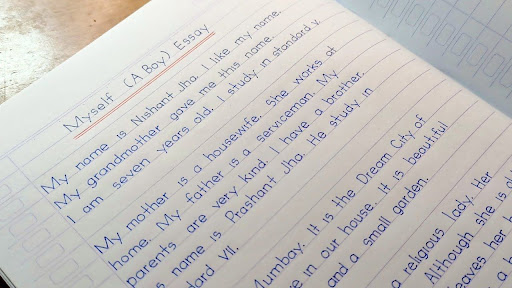 Myself (A Boy) Essay
My name is Nishant Jha. I like my name.
My grandmother gave me this name.
I am seven years old. I study in standard v.
My mother is a housewife. She works at
home. My father is a serviceman. My
parents are very kind. I have a brother.
name is Prashant Jha. He study in
dard VII.
Mumbay. It is the Dream City of
in our house. it is beautiful
and a small garden.
a religious lady. Her
Although she is
leaves her